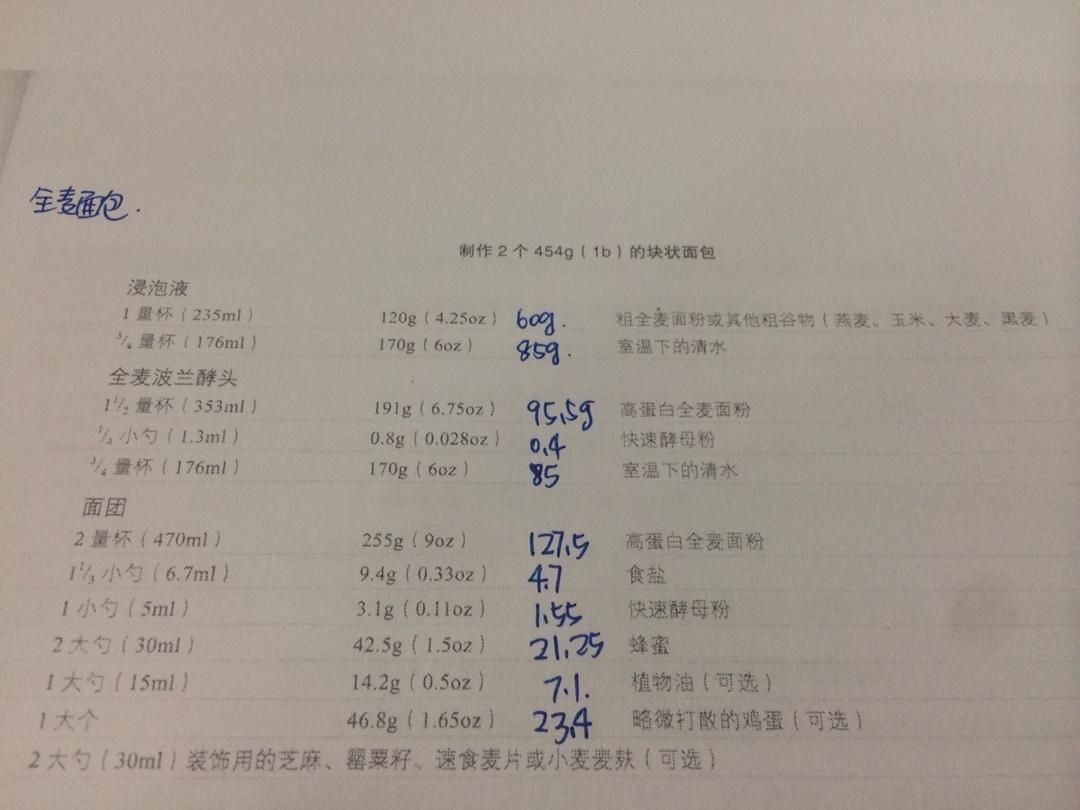 全麦面包.
制作 2 个 454g（1b）的块状面包
浸泡液
1 量杯（235ml） 120g（4.25oz） 60g. 粗全麦面粉或其他粗谷物（燕麦、玉米、大麦、黑麦）
3/4 量杯（176ml） 170g（6oz） 85g. 室温下的清水
全麦波兰酵头
1 1/2 量杯（353ml） 191g（6.75oz） 95.5g 高蛋白全麦面粉
1/4 小勺（1.3ml） 0.8g（0.028oz） 0.4 快速酵母粉
3/4 量杯（176ml） 170g（6oz） 85 室温下的清水
面团
2 量杯（470ml） 255g（9oz） 127.5 高蛋白全麦面粉
1 1/3 小勺（6.7ml） 9.4g（0.33oz） 4.7 食盐
1 小勺（5ml） 3.1g（0.11oz） 1.55 快速酵母粉
2 大勺（30ml） 42.5g（1.5oz） 21.25 蜂蜜
1 大勺（15ml） 14.2g（0.5oz） 7.1. 植物油（可选）
1 大个 46.8g（1.65oz） 23.4 略微打散的鸡蛋（可选）
2 大勺（30ml）装饰用的芝麻、罂粟籽、速食麦片或小麦麦麸（可选）